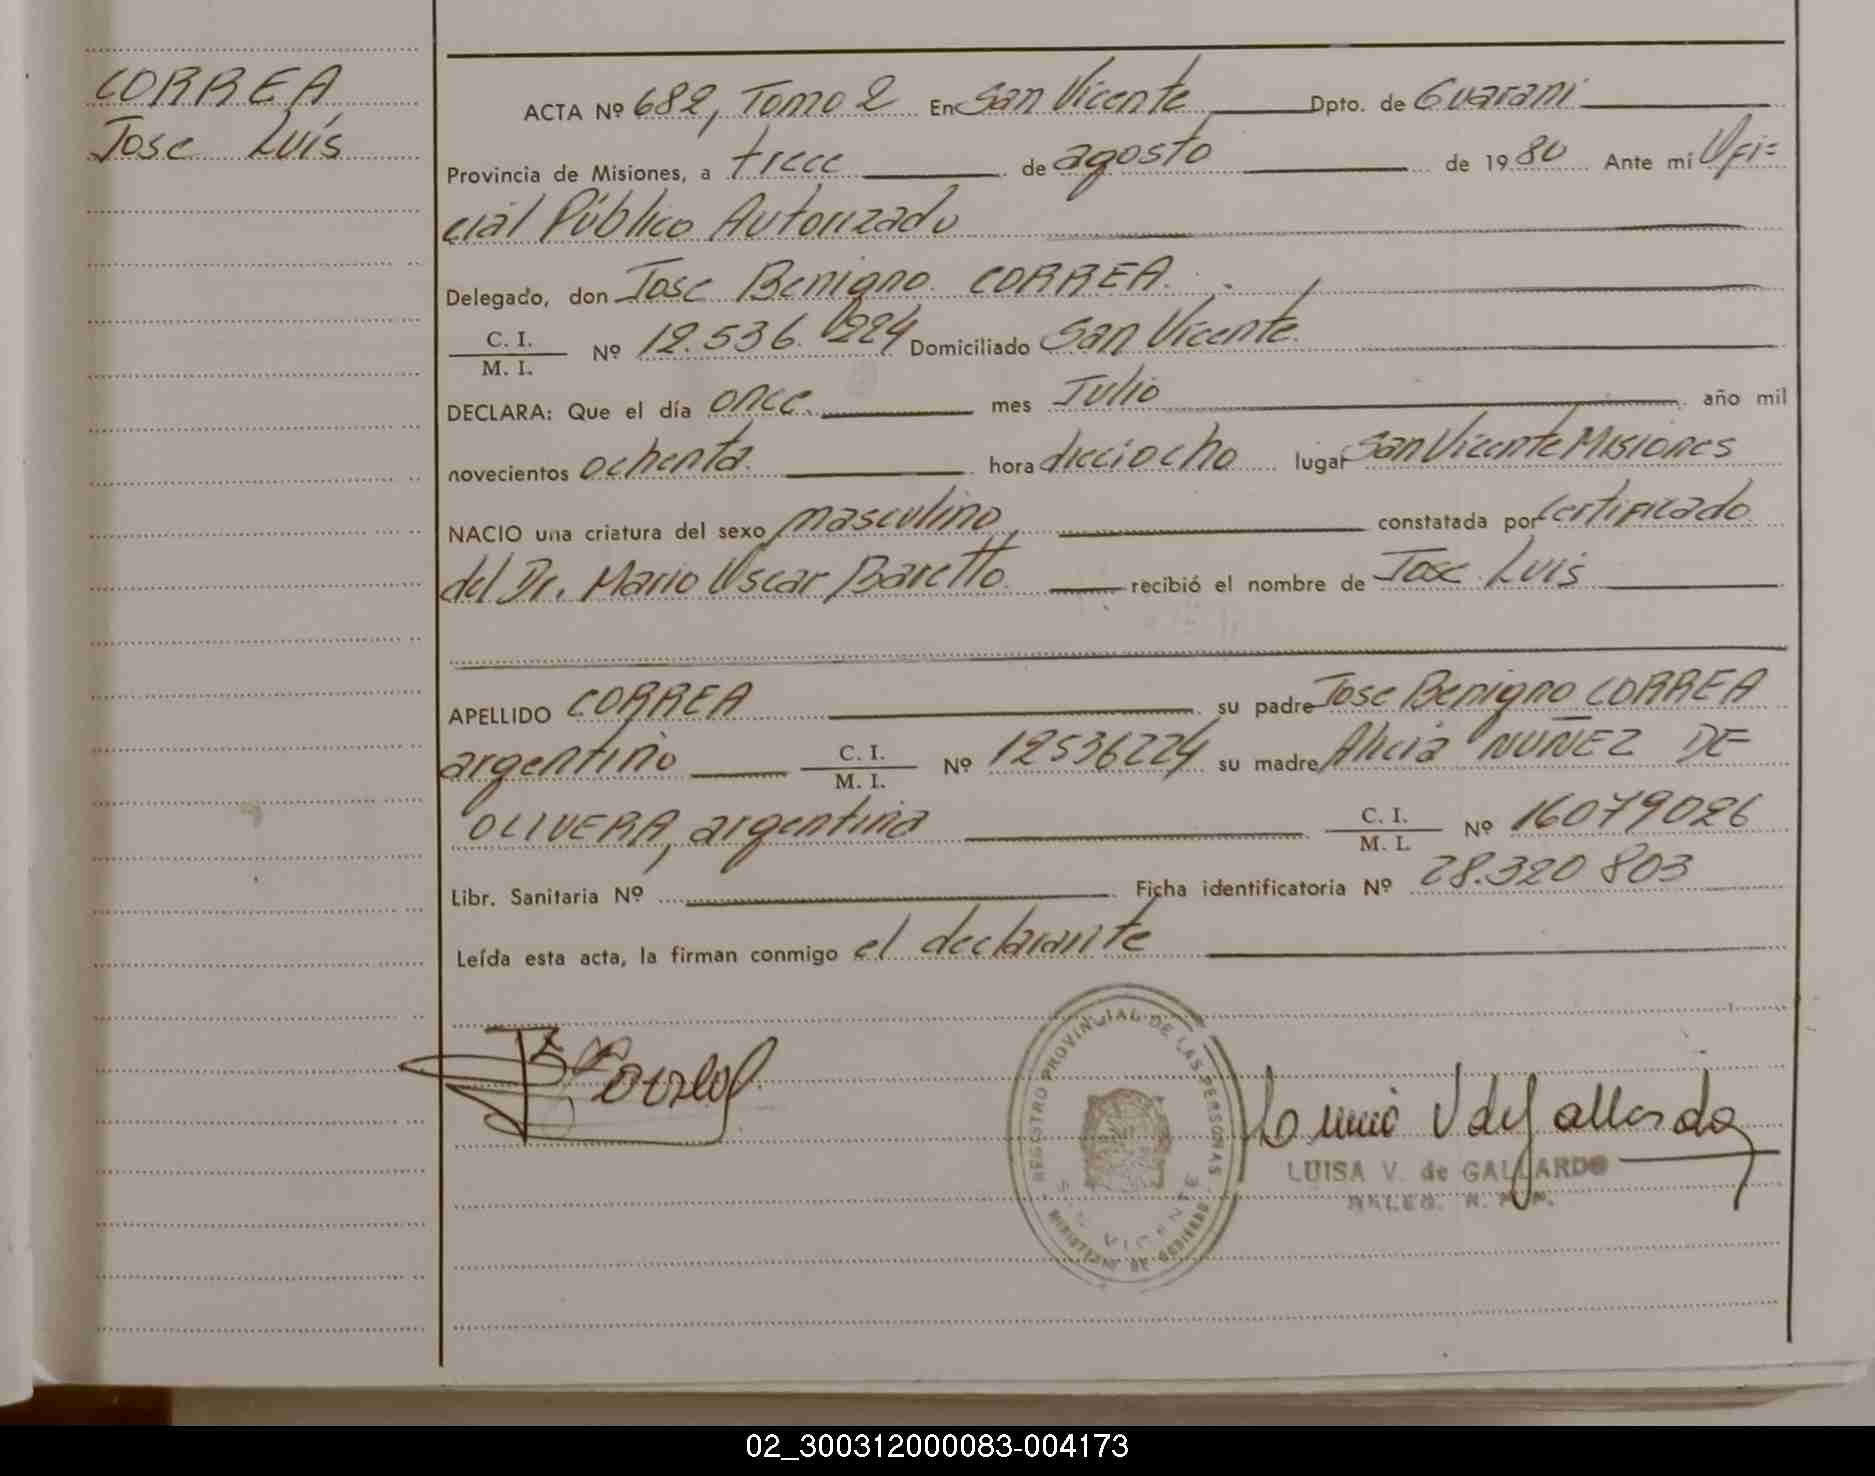 CORREA
Jose Luis
ACTA Nº 682, Tomo 2 En San Vicente Dpto. de Guarani
Provincia de Misiones, a trece de agosto de 1980 Ante mí Ofi=
cial Público Autorizado
Delegado, don Jose Benigno CORREA.
C. I.
M. I. Nº 12.536.224 Domiciliado San Vicente.
DECLARA: Que el día once mes Julio año mil
novecientos ochenta hora dieciocho lugar San Vicente Misiones
NACIO una criatura del sexo masculino constatada por certificado
del Dr. Mario Oscar Baretto recibió el nombre de Jose Luis
APELLIDO CORREA su padre Jose Benigno CORREA
argentino C. I. M. I. Nº 12536224 su madre Alicia NUÑEZ DE
OLIVERA, argentina C. I. M. I. Nº 16079026
Libr. Sanitaria Nº Ficha identificatoria Nº 28.320 803
Leída esta acta, la firman conmigo el declarante
REGISTRO PROVINCIAL DE LAS PERSONAS
SAN VICENTE
MINISTERIO DE GOBIERNO
LUISA V. de GALLARDO
02_300312000083-004173